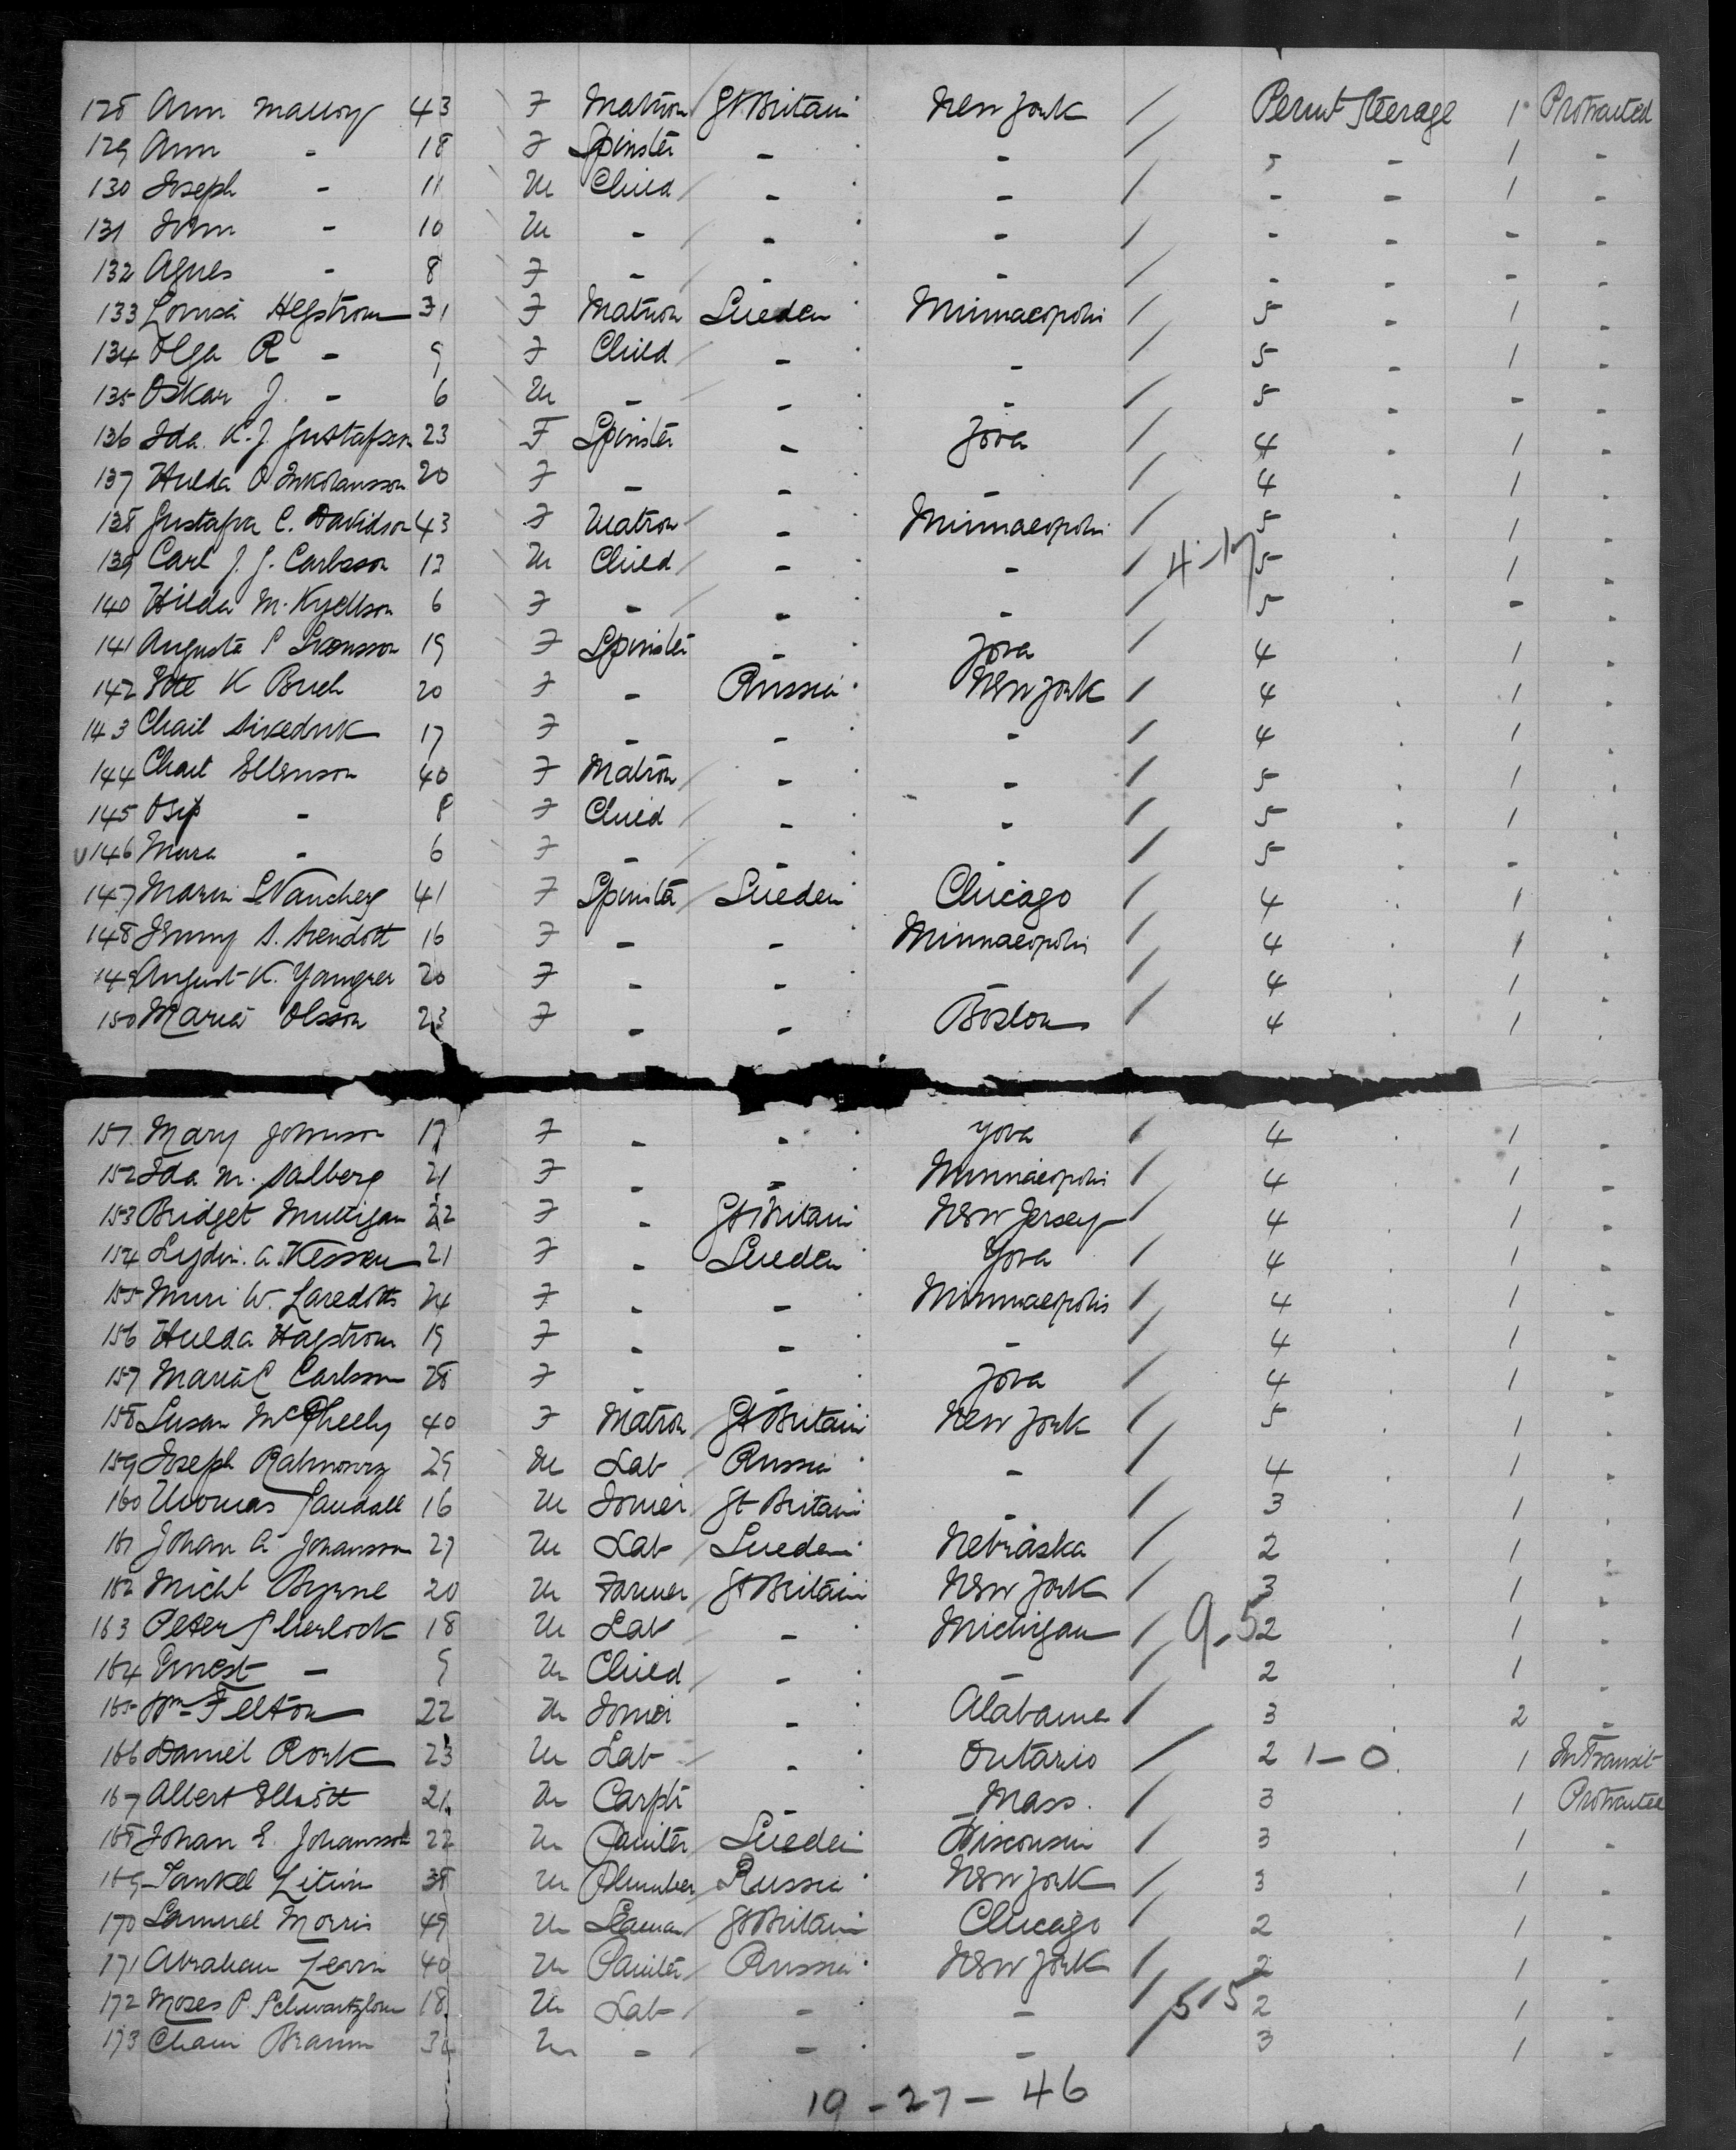 128 Ann Malloy 43 F Matron / Gt Britain New York / Permt Steerage 1 Protracted
129 Ann - 18 F Spinster - - / - - 1 -
130 Joseph - 11 M Child / - - / - - 1 -
131 John - 10 M - / - - / - - - -
132 Agnes - 8 F - / - - / - - - -
133 Lovisa Hegstrom 31 F Matron Sueden Minneapolis / 5 - 1 -
134 Olga R - 9 F Child / - - / 5 - 1 -
135 Oskar J. - 6 M - / - - / 5 - - -
136 Ida K. J. Gustafsson 23 F Spinster - Jova / 4 - 1 -
137 Hulda 20 F - - - / 4 - 1 -
138 Gustafva C. Davidson 43 F Matron / - Minneapolis / 5 - 1 -
139 Carl J. J. Carlsson 12 M Child / - - / 4-17 5 - 1 -
140 Hilda M. Kjellson 6 F - / - - / 5 - -
141 Augusta Svensson 19 F Spinster - Jova / 4 1 -
142 K Buch 20 F - Russia New York / 4 1 -
143 Chail 17 F - - - / 4 1 -
144 Ellenson 40 F Matron / - - / 5 1
145 Osip - 8 F Child / - - / 5 1
146 Mara - 6 F - / - - / 5 -
147 41 F Spinster / Sueden Chicago / 4 1
148 Jenny S. 16 F - - Minneapolis / 4 1
149 August K. 20 F - - - / 4 1
150 Maria Olsson 23 F - - Boston / 4 1
151 Mary Johnson 17 F - - Yova / 4 1 -
152 Ida M. Salberg 21 F - - Minneapolis / 4 1 -
153 Bridget Mulligan 22 F - Gt Britain New Jersey / 4 1 -
154 21 F - Sueden Yova / 4 1 -
155 W. 24 F - - Minneapolis / 4 1 -
156 Hulda Hagstrom 19 F - - - / 4 1 -
157 Maria C Carlsson 28 F - - Jova / 4 1 -
158 Susan 40 F Matron / Gt Britain New York / 5 1 -
159 Joseph 29 M Lab / Russia - / 4 1 -
160 Thomas 16 M Joiner / Gt Britain - / 3 1
161 Johan A Johansson 27 M Lab / Sueden Nebraska / 2 1
162 Michl Byrne 20 M Farmer / Gt Britain New York / 3 1 -
163 Peter Sherlock 18 M Lab / - Michigan / 9-5 2 1 -
164 Ernest - 9 M Child / - - / 2 1 -
165 Wm Felton 22 M Joiner - Alabama / 3 2 -
166 Daniel Rork 23 M Lab / - Ontario / 2 1-0 1 In Transit
167 Albert Elliott 21 M Carptr - Mass. / 3 1 Protracted
168 Johan E. Johansson 22 M Painter / Sueden Wisconsin / 3 1 -
169 Litvin 38 M Plumber / Russia New York / 3 1 -
170 Samuel Morris 49 M Seaman / Gt Britain Chicago / 2 1 -
171 Abraham Levin 40 M Painter / Russia New York / 2 1 -
172 Moses P. 18 M Lab / - - / 5-5 2 1 -
173 Chaim M - - - / 3 1 -
19-27-46